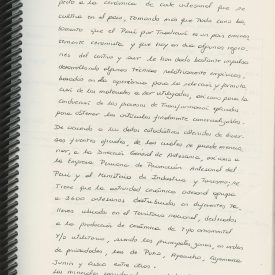 pecto a la cerámica de corte artesanal que se
cultiva en el país, tomando más que nada como ba
samento que el Perú por Tradición es un país eminen
temente ceramista y que hay en día algunas regio
nes del cultivo y aun le han dado bastante impulso
desarrollando algunas técnicas relativamente empíricas,
basadas en la experiencia para la selección y formula
ción de los materiales a ser utilizados, así como para la
conducción de los procesos de Transformación aplicados
para obtener los artículos finalmente comercializables.
De acuerdo a los datos estadísticos obtenidos de diver
sas fuentes oficiales, de las cuales se puede mencio
nar, a la Dirección General de Artesanía, así como a
la Empresa Peruana de Promoción Artesanal del
Perú y el Ministerio de Industria y Turismo; se
Tiene que la actividad cerámica artesanal agrupa
a 3600 artesanos distribuidos en diferentes Ta
lleres ubicados en el Territorio nacional, dedicados
a la producción de cerámica de tipo ornamental
y/o utilitario, siendo los principales zonas, en orden
de prioridades, los de Puno, Ayacucho, Cajamarca
Junín y Cusco entre otros.